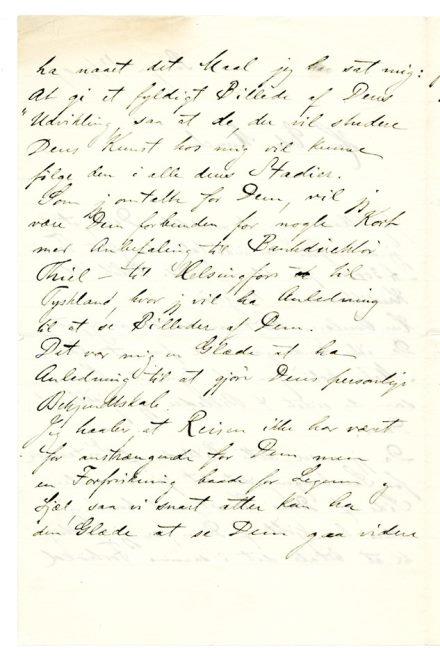 ha naaet det Maal jeg har sat mig:
At gi et fyldigt Billede af Deres
Udvikling saa at de, der vil studere
Deres Kunst hos mig vil kunne
følge den i alle dens Stadier.
Som jeg omtalte for Dem, vil jeg
være Dem forbunden for nogle Kort
med Anbefaling til Bankdirektør
Thiel – til Helsingfors til
Tyskland, hvor jeg vil ha Anledning
til at se Billeder af Dem.
Det var mig en Glæde at ha
Anledning til at gjøre Deres personlige
Bekjendtskab.
Jeg haaber at Reisen ikke har vært
for anstrængende for Dem men
en Forfriskning baade for Legeme og
Sjæl, saa vi snart atter kan ha
den Glæde at se Dem gaa videre